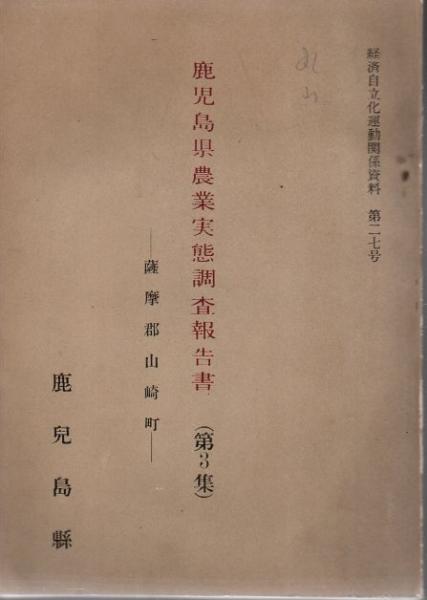 経済自立化運動関係資料 第二七号
鹿児島県農業実態調査報告書(第3集)
―薩摩郡山崎町―
鹿兒島縣